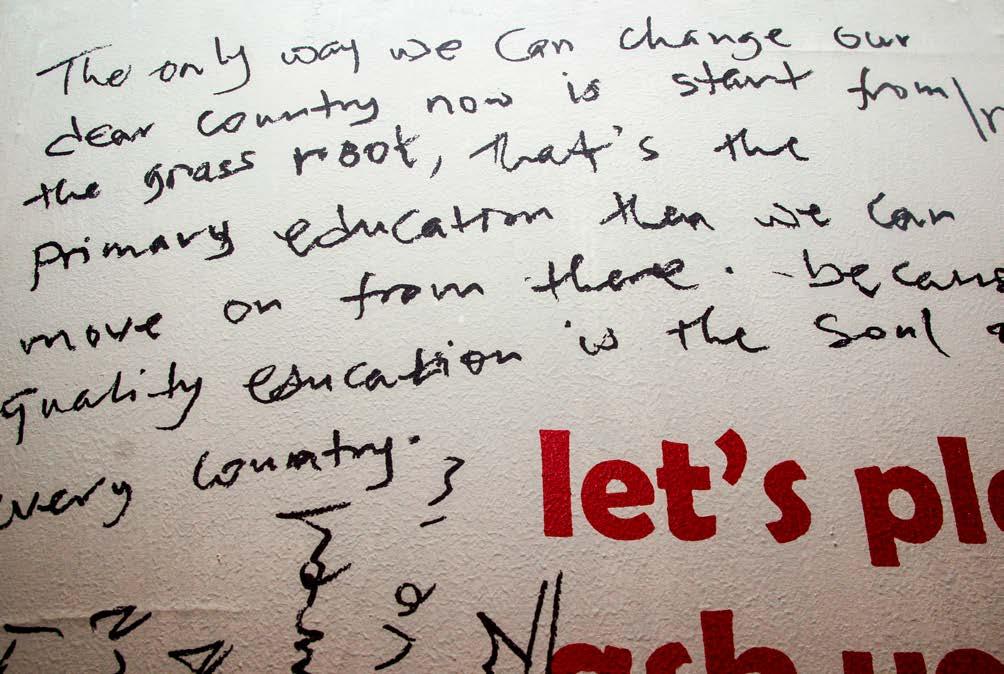 The only way we Can change our
dear country now is start from
the grass root, that's the
Primary education then we Can
move on from there. because
Quality education is the Soul
every Country.
let's